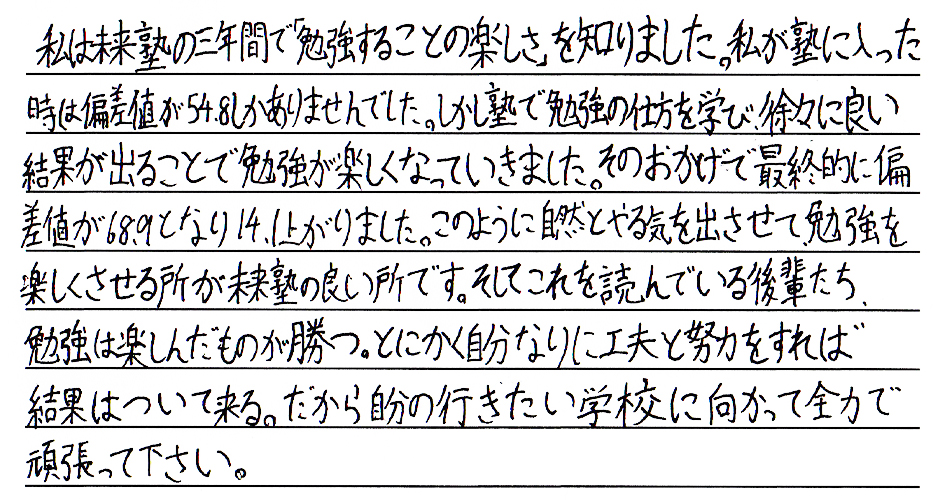 私は未来塾の三年間で「勉強することの楽しさ」を知りました。私が塾に入った
時は偏差値が54.8しかありませんでした。しかし塾で勉強の仕方を学び、徐々に良い
結果が出ることで勉強が楽しくなっていきました。そのおかげで最終的に偏
差値が68.9となり14.1上がりました。このように自然とやる気を出させて、勉強を
楽しくさせる所が未来塾の良い所です。そしてこれを読んでいる後輩たち、
勉強は楽しんだものが勝つ。とにかく自分なりに工夫と努力をすれば
結果はついて来る。だから自分の行きたい学校に向かって全力で
頑張って下さい。